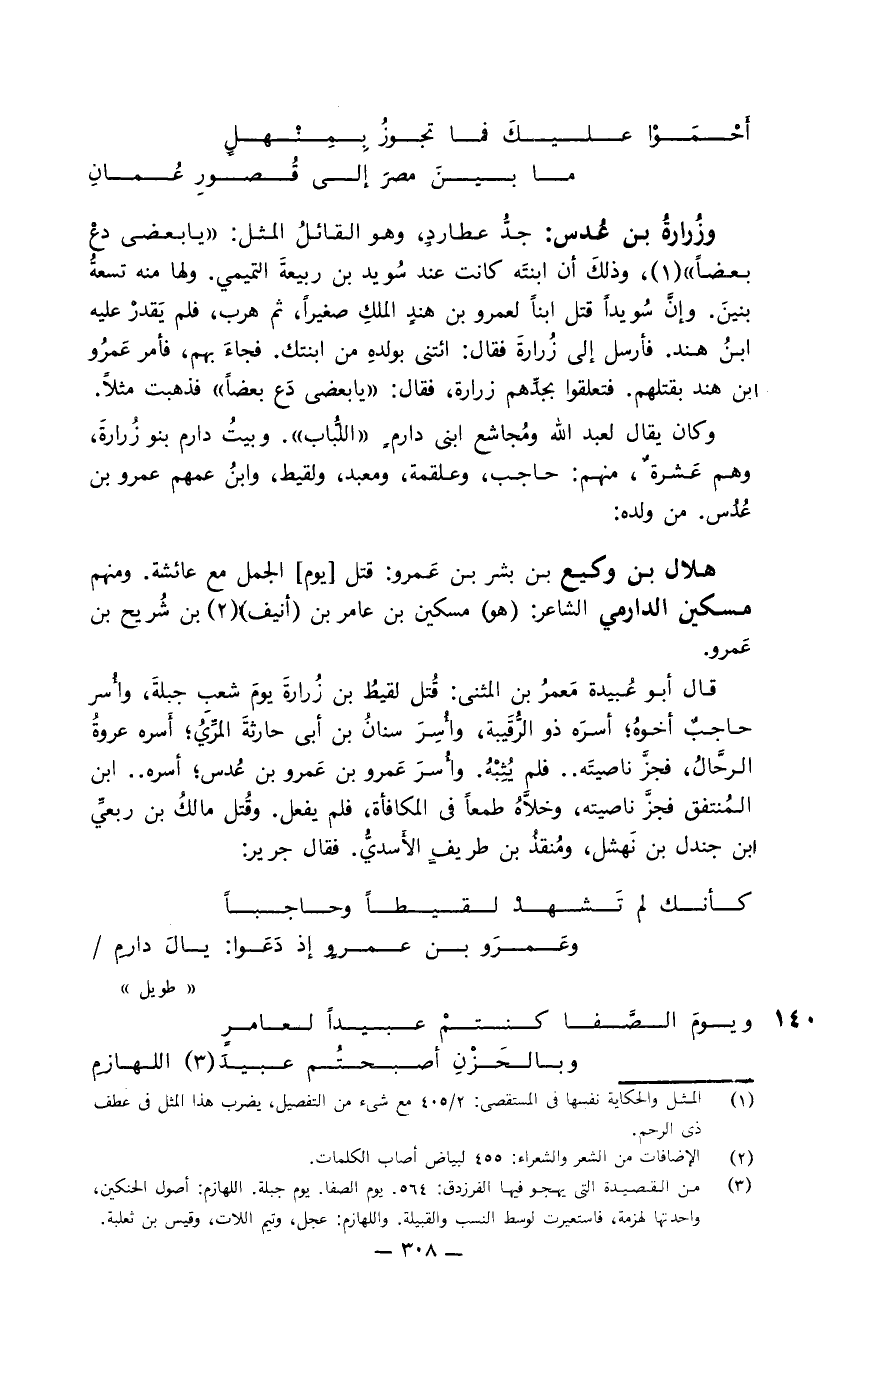 أَحْمَوْا عليكَ فما تجوزُ بِمِنْهلٍ
ما بينَ مصرَ إلى قُصورِ عُمانِ
وزُرارةُ بن عُدس: جدُّ عطاردٍ، وهو القائلُ المثل: «يابعضى دعْ
بعضاً»(١)، وذلكَ أن ابنتَه كانت عند سُويد بن ربيعةَ التميمي. ولها منه تسعةُ
بنينَ. وإنَّ سُويداً قتل ابناً لعمرو بن هندٍ الملكِ صغيراً، ثم هرب، فلم يَقدرْ عليه
ابنُ هند. فأرسل إلى زُرارةَ فقال: ائتنى بولدهِ من ابنتك. فجاءَ بهم، فأمر عَمرُو
ابن هند بقتلهم. فتعلقوا بجدِّهم زرارة، فقال: «يابعضى دَع بعضاً» فذهبت مثلاً.
وكان يقال لعبد الله ومُجاشع ابنى دارمٍ «اللُّباب». وبيتُ دارم بنو زُرارةَ،
وهم عَشرةٌ، منهم: حاجب، وعلقمة، ومعبد، ولقيط، وابنُ عمهم عمرو بن
عُدُس. من ولده:
هلال بن وكيع بن بشر بن عَمرو: قتل [يوم] الجمل مع عائشة. ومنهم
مسكين الدارمي الشاعر: (هو) مسكين بن عامر بن (أنيف)(٢) بن شُريح بن
عَمرو.
قال أبو عُبيدة مَعمرُ بن المثنى: قُتل لقيطُ بن زُرارةَ يومَ شعبِ جبلةَ، وأُسر
حاجبٌ أخوهُ؛ أسرَه ذو الرُّقيبة، وأُسِرَ سنانُ بن أبى حارثةَ المرِّيُ؛ أَسره عروةُ
الرحَّالُ، فجزَّ ناصيتَه.. فلم يُثِبْهُ. وأُسرَ عَمرو بن عَمرو بن عُدس؛ أسره.. ابن
المُنتفق فجزَّ ناصيته، وخلاَّهُ طمعاً فى المكافأة، فلم يفعل. وقُتل مالكُ بن ربعيِّ
ابن جندل بن نَهشل، ومُنقذُ بن طريفٍ الأَسديُّ. فقال جرير:
كأنك لم تَشهدْ لقيطاً وحاجباً
وعَمرَو بن عمرو إذ دَعَوا: يالَ دارم /
« طويل »
١٤٠ ويومَ الصَّفا كنتمْ عبيداً لعامرٍ
وبالحَزْنِ أصبحتُم عبيدَ(٣) اللهازم
(١) المثل والحكاية نفسها فى المستقصى: ٤٠٥/٢ مع شىء من التفصيل، يضرب هذا المثل فى عطف
ذى الرحم.
(٢) الإضافات من الشعر والشعراء: ٤٥٥ لبياض أصاب الكلمات.
(٣) من القصيدة التى يهجو فيها الفرزدق: ٥٦٤. يوم الصفا. يوم جبلة. اللهازم: أصول الحنكين،
واحدتها لهزمة، فاستعيرت لوسط النسب والقبيلة. واللهازم: عجل، وتيم اللات، وقيس بن ثعلبة.
— ٣٠٨ —